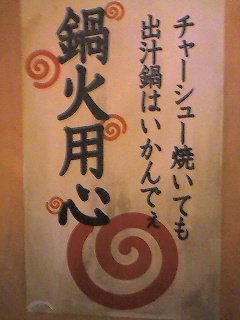 チャーシュー焼いても
出汁鍋はいかんでぇ
鍋火用心